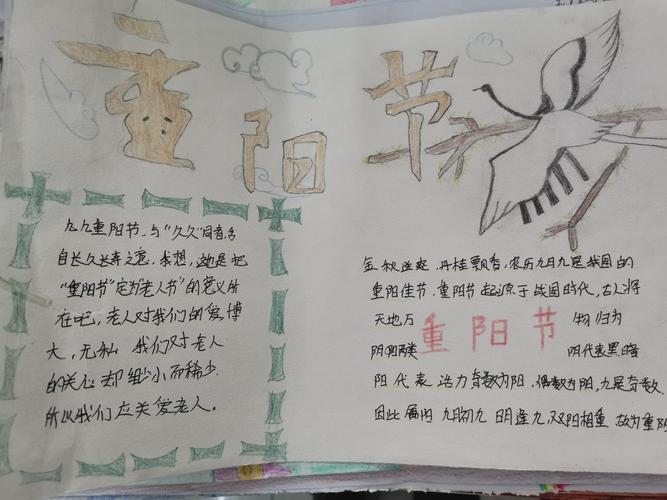 重阳节
九九重阳节，与“久久”同音，含
有长久长寿之意，我想，这是把
“重阳节”定为“老人节”的意义所
在吧，老人对我们的爱，博
大，无私 我们对老人
的关心却细小而稀少
所以我们应关爱老人。
金秋送爽，丹桂飘香，农历九月九是我国的
重阳佳节，重阳节起源于战国时代，古人将
天地万 物归为
阴阳两类 阴代表黑暗
重阳节
阳代表活力奇数为阳，偶数为阴，九是奇数.
因此属阳 九月初九 日月逢九，双阳相重 故为重阳